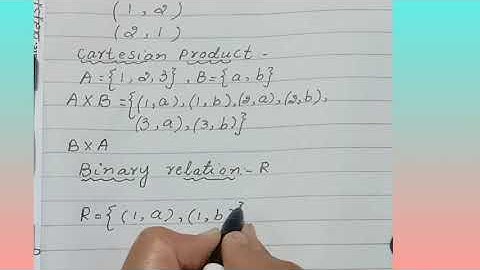 (1,2)
(2,1)
Cartesian Product -
A={1,2,3}, B={a,b}
AXB={(1,a),(1,b),(2,a),(2,b),
(3,a),(3,b)}
BXA
Binary relation - R
R={(1,a),(1,b